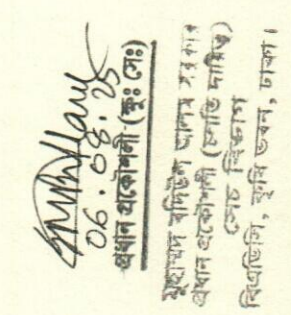 06.08.25
প্রধান প্রকৌশলী (ক্ষুঃ সেঃ)
মুহাম্মদ বদিউল আলম সরকার
প্রধান প্রকৌশলী (চলতি দায়িত্ব)
সেচ বিভাগ
বিএডিসি, কৃষি ভবন, ঢাকা।